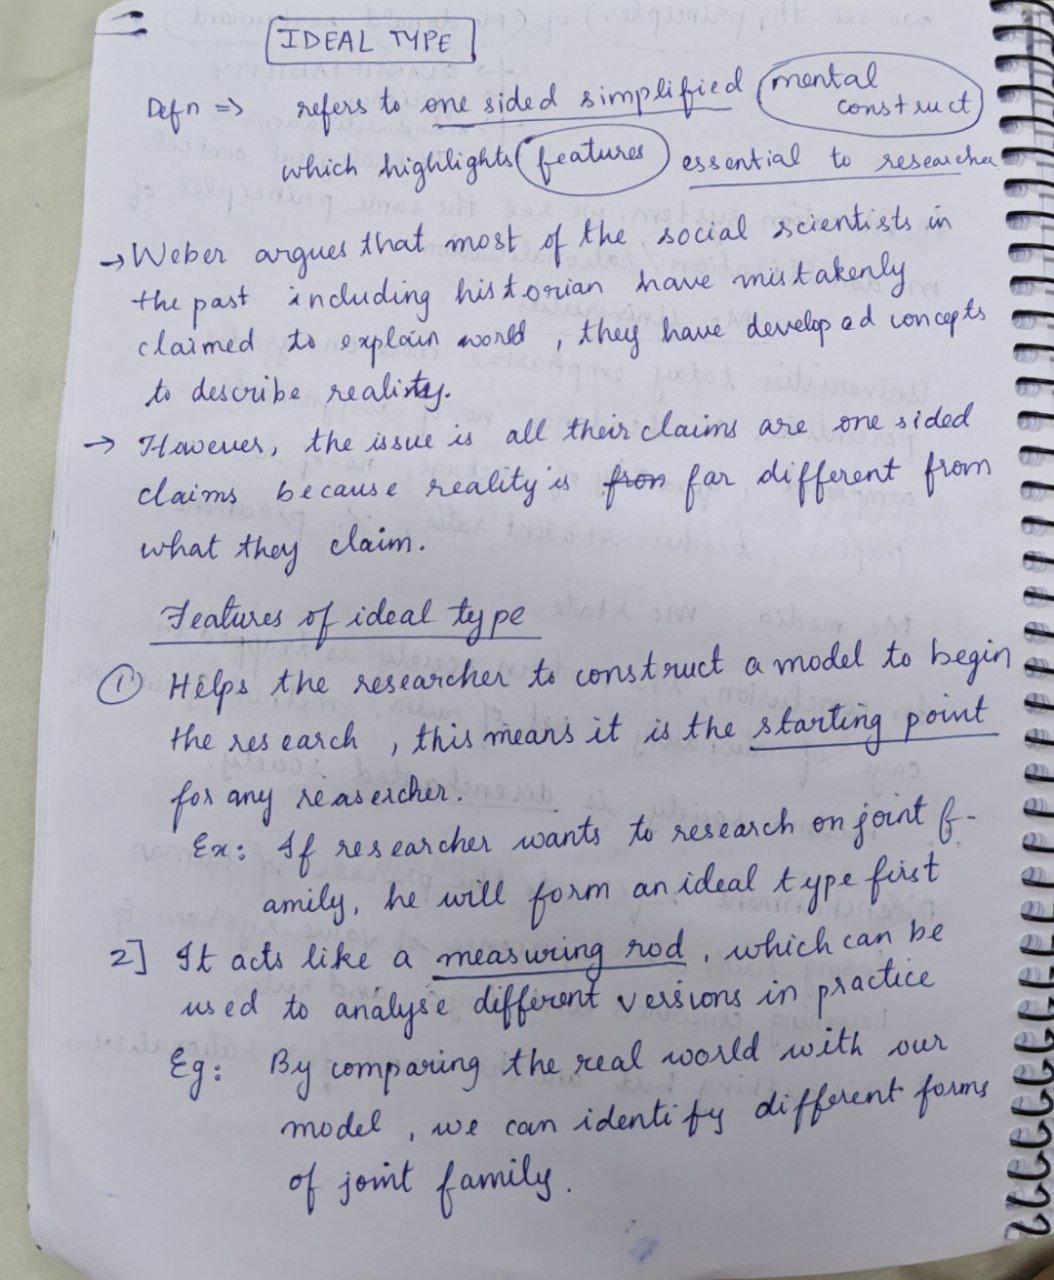 IDEAL TYPE
Defn => refers to one sided simplified mental
construct
which highlights features essential to researcher
→ Weber argues that most of the social scientists in
the past including historian have mistakenly
claimed to explain world , they have developed concepts
to describe reality.
→ However, the issue is all their claims are one sided
claims because reality is fron far different from
what they claim.
Features of ideal type
① Helps the researcher to construct a model to begin
the research , this means it is the starting point
for any reasercher.
Ex: If researcher wants to research on joint f-
amily, he will form an ideal type first
2] It acts like a measuring rod , which can be
used to analyse different versions in practice
Eg: By comparing the real world with our
model , we can identify different forms
of joint family.